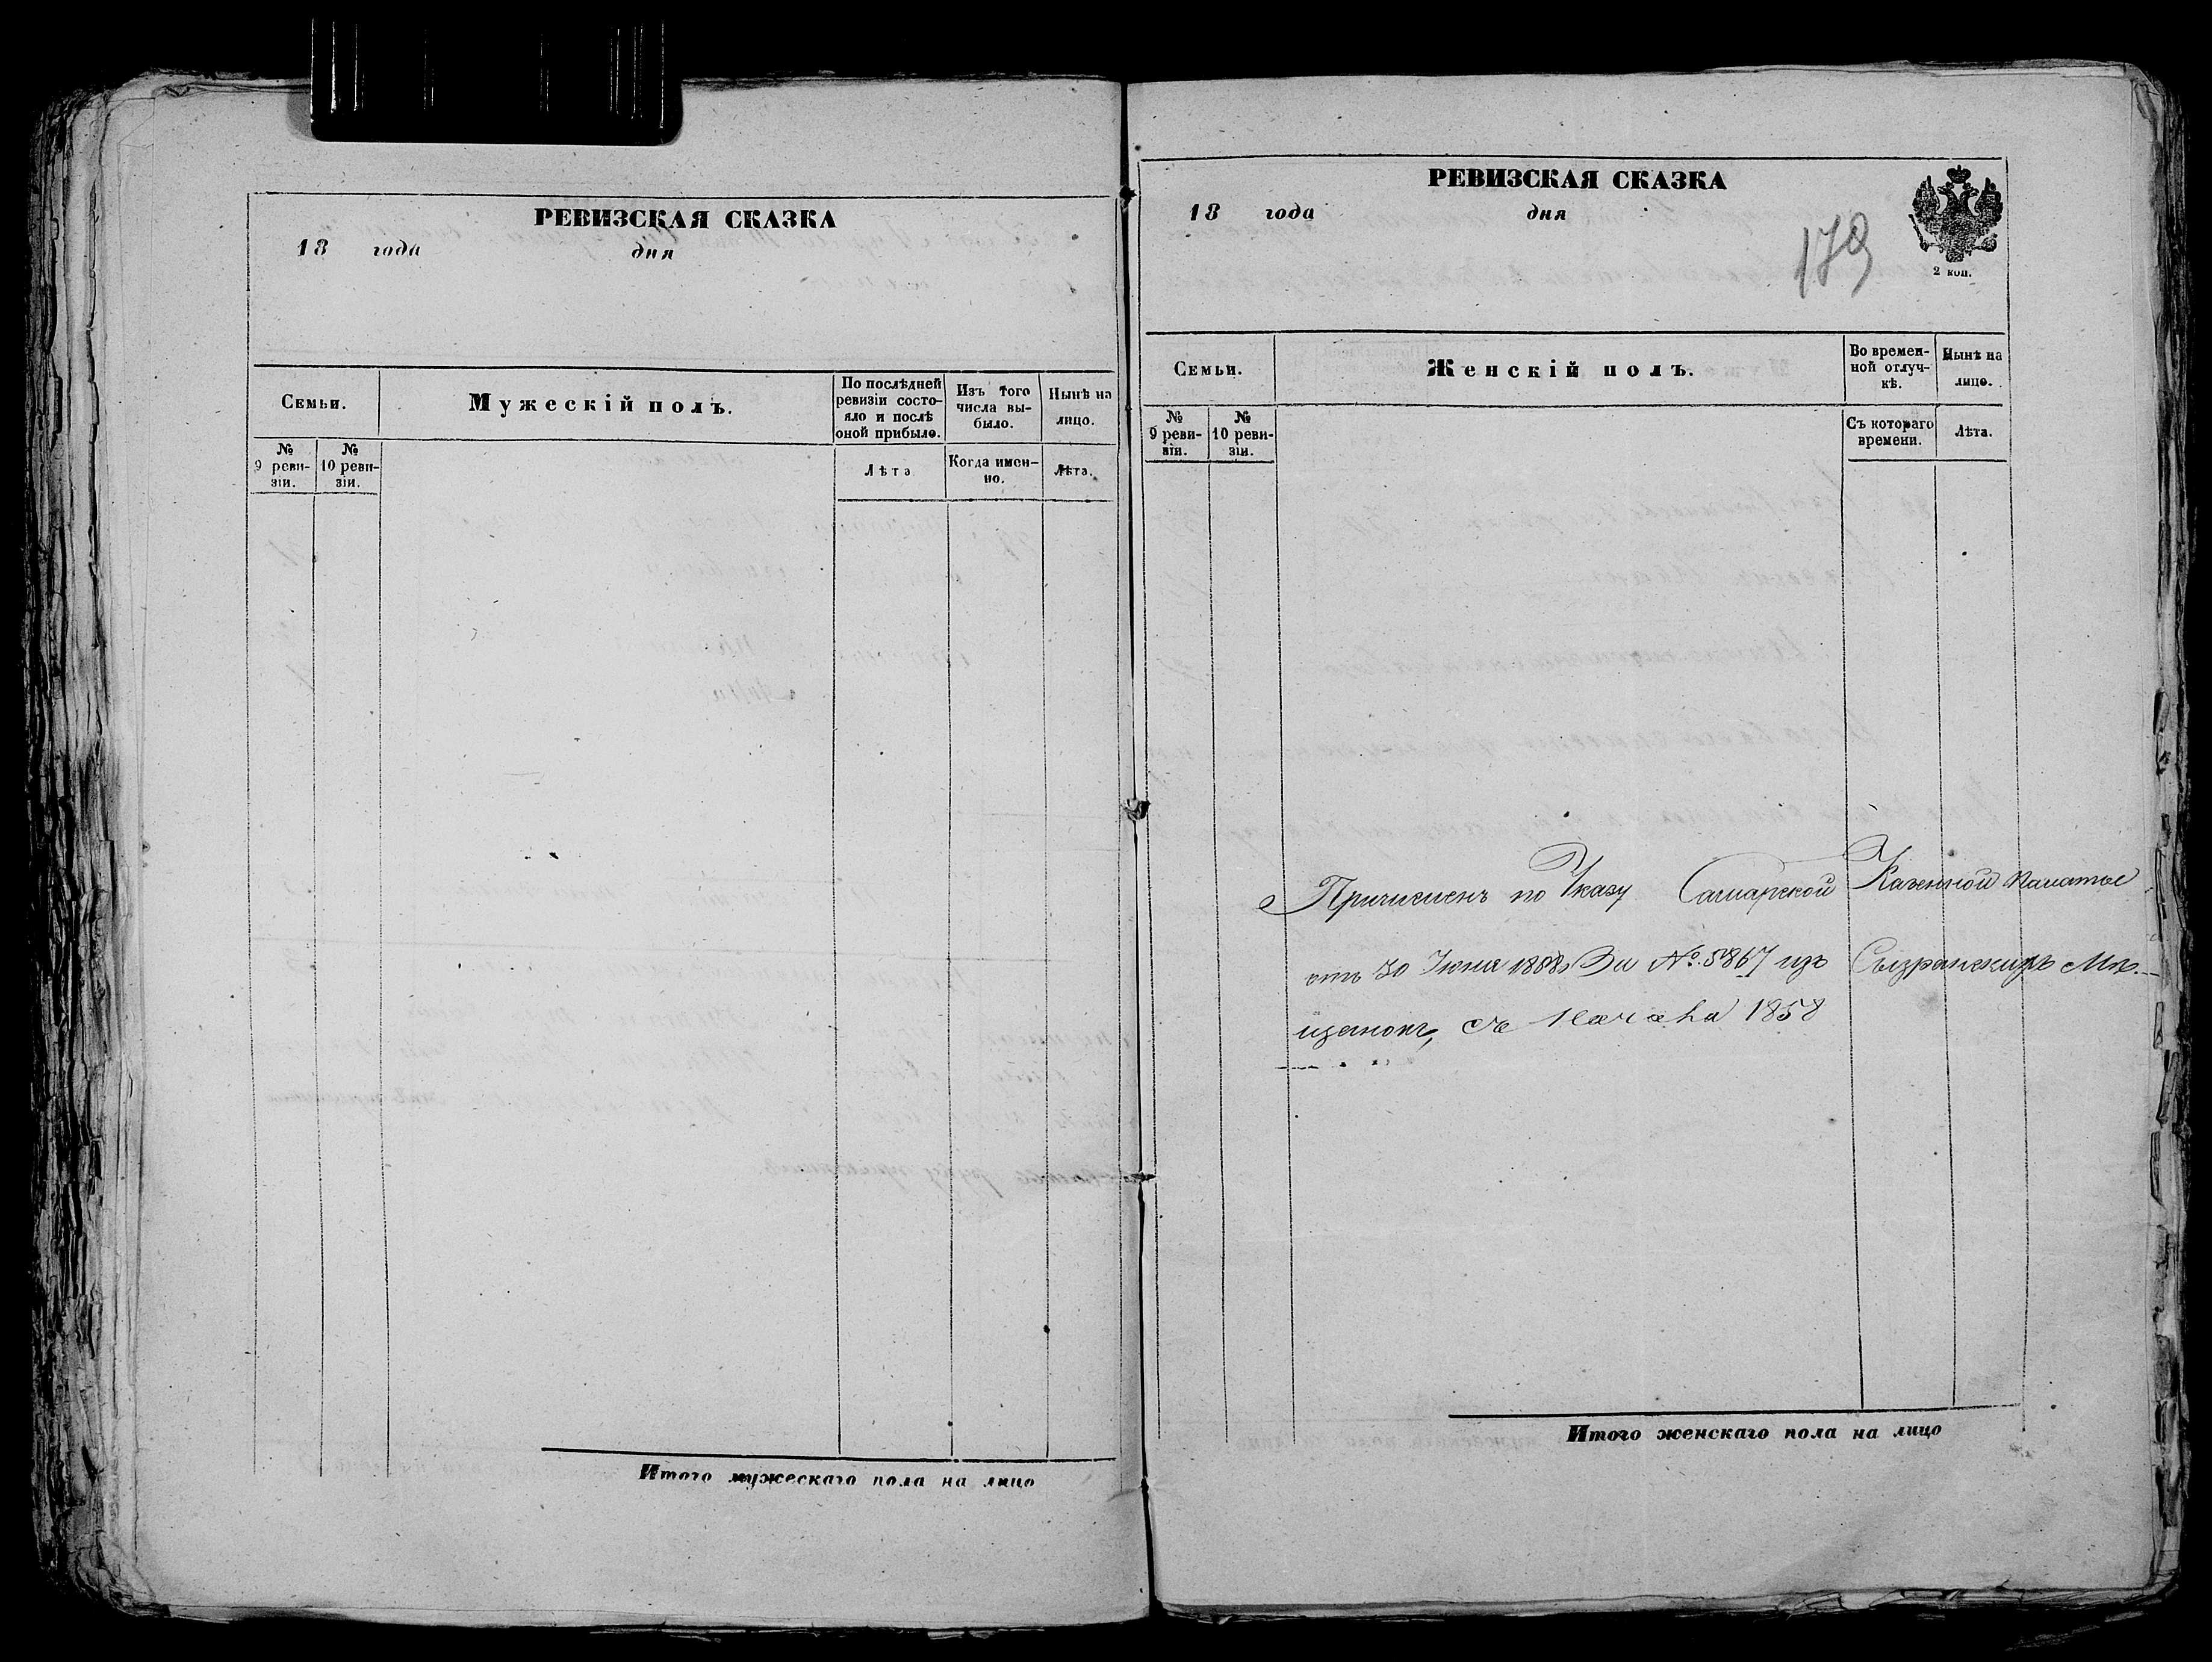 РЕВИЗСКАЯ СКАЗКА
18 года дня
Семьи.
Мужескій полъ.
По послѣдней ревизіи состояло и послѣ оной прибыло.
Изъ того числа выбыло.
Нынѣ на лицо.
№ 9 ревизіи.
№ 10 ревизіи.
Лѣта
Когда именно.
Лѣта.
Итого мужескаго пола на лицо
РЕВИЗСКАЯ СКАЗКА
18 года дня
179
2 коп.
Семьи.
Женскій полъ.
Во временной отлучкѣ.
Нынѣ на лицо.
№ 9 ревизіи.
№ 10 ревизіи.
Съ котораго времени.
Лѣта.
Причисленъ по Указу Самарской Казенной палаты
отъ 30 Іюня За № 5867 изъ Сызранскихъ Мѣ-
щанокъ, съ начала 1858
Итого женскаго пола на лицо